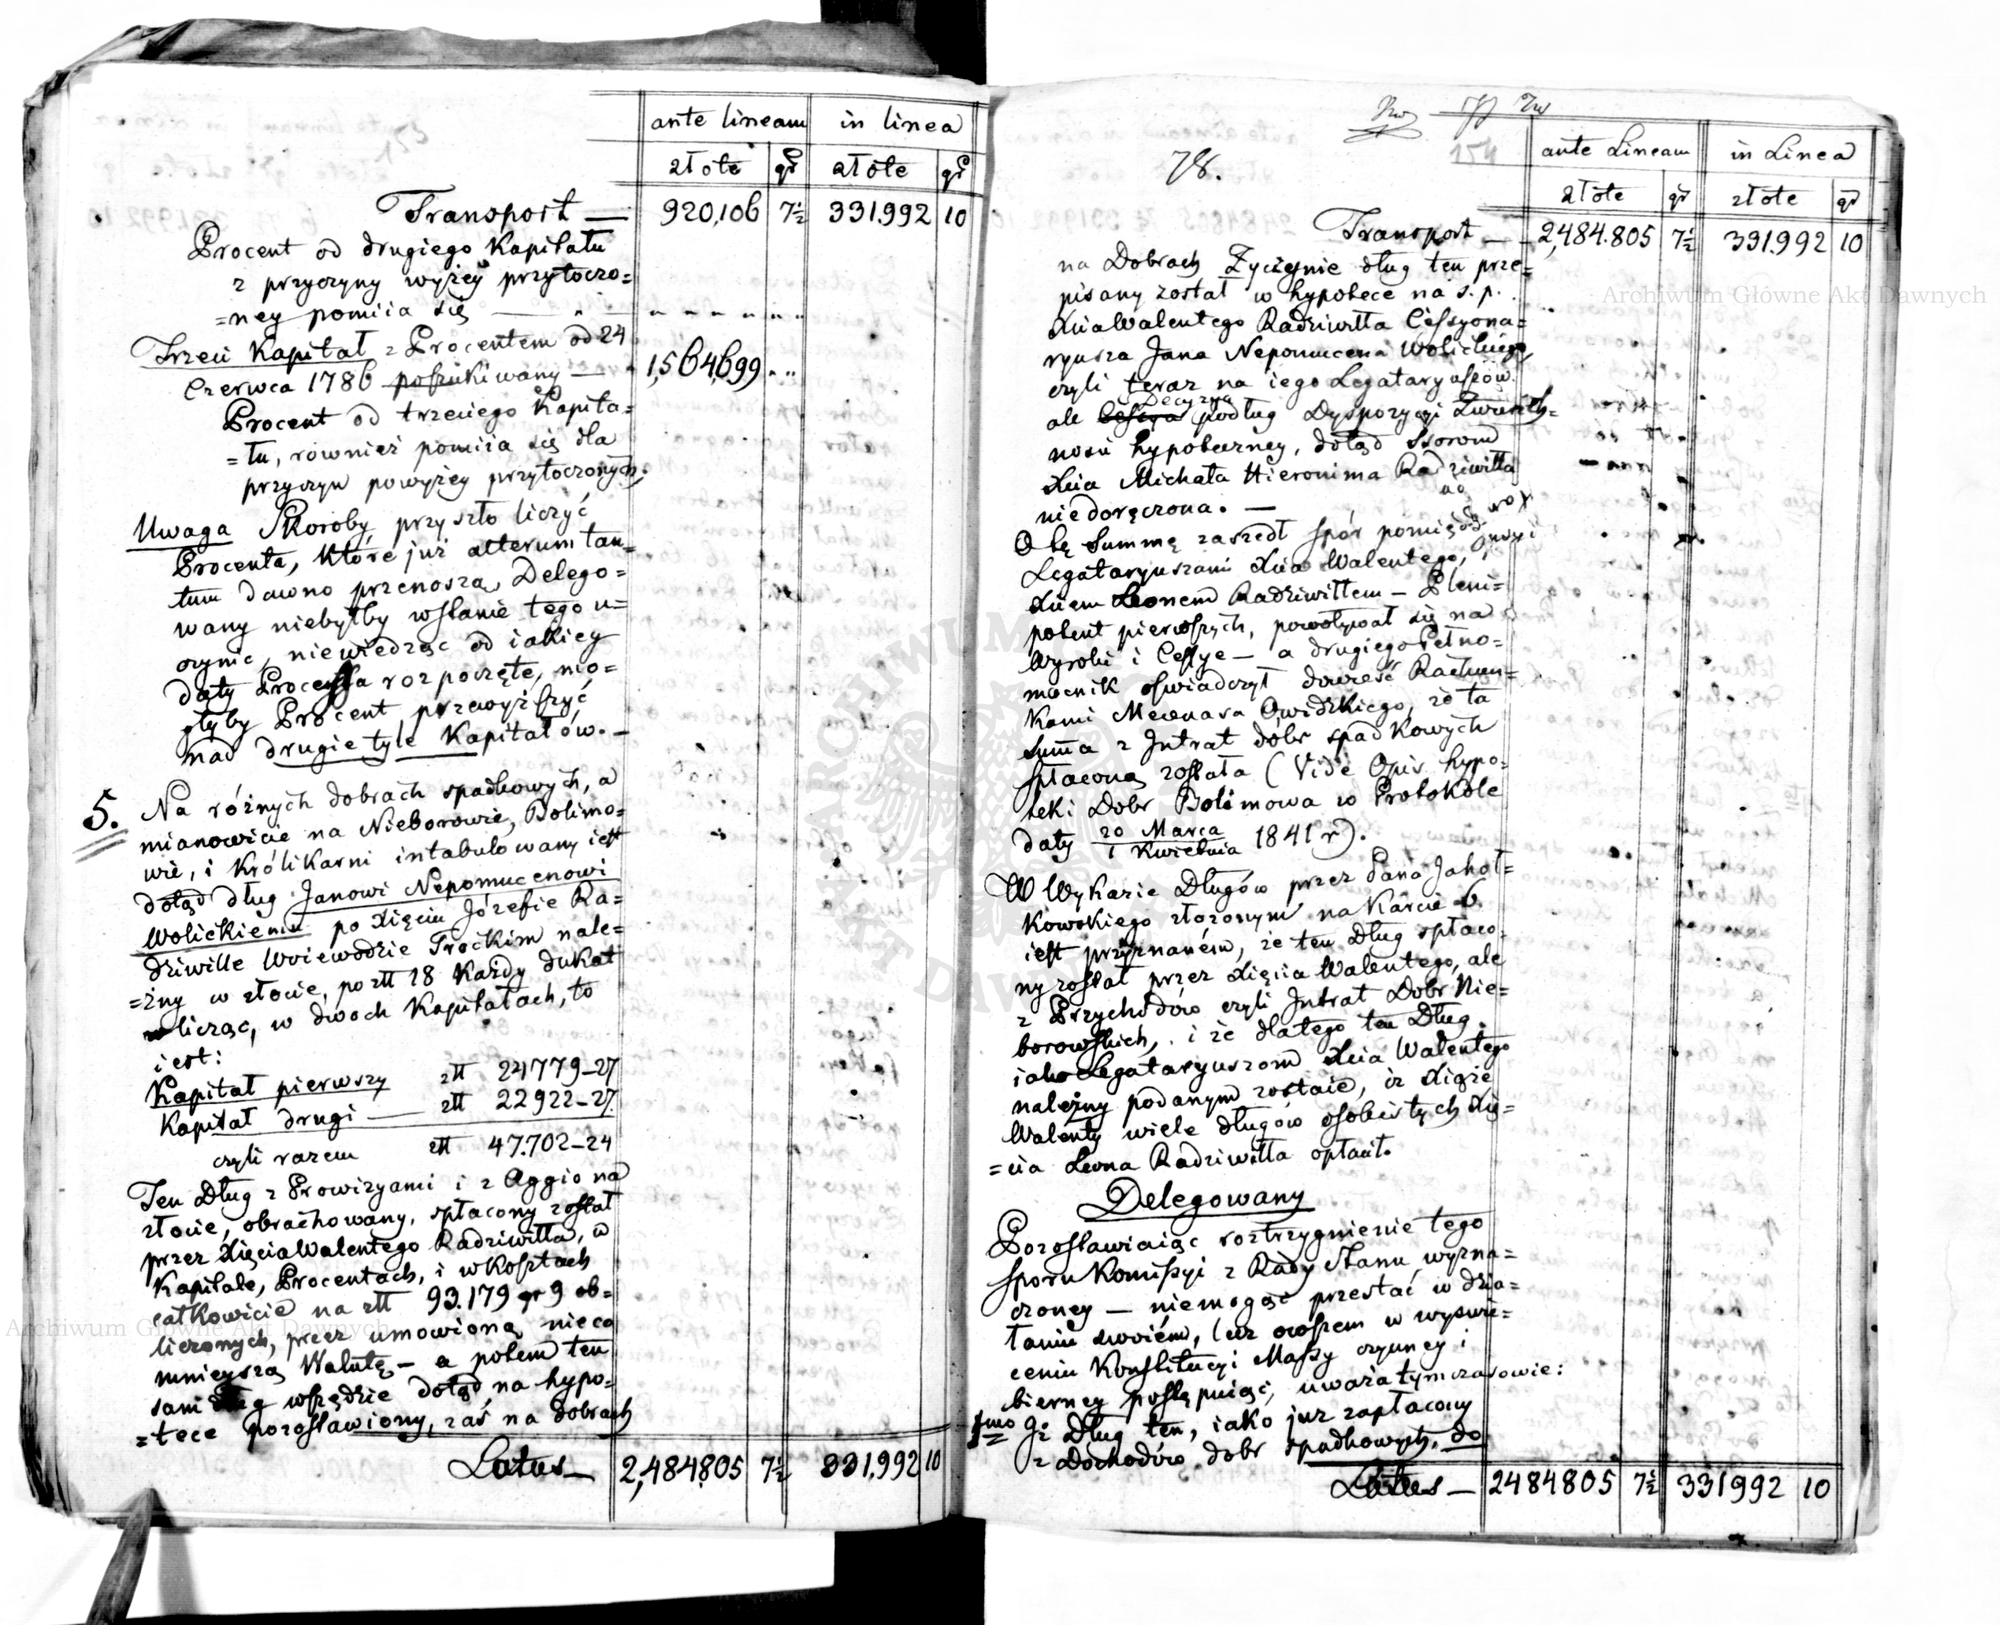 ante lineam in linea
złote gr złote gr
Transport — 920,106 7½ 331.992 10
Procent od drugiego Kapitału
z przyczyny wyżey przytoczo=
=ney pomiia się —
Trzeci Kapitał z Procentem od 24
Czerwca 1786 poszukiwany — 1,564,699
Procent od trzeciego Kapita=
=łu, również pomiia się dla
przyczyn powyżey przytoczonych.
Uwaga Skoroby przyszło liczyć
Procenta, które już alterum tan=
tum dawno przenoszą, Delego=
wany niebyłby wstanie tego u=
czynić, niewiedząc od iakiey
daty Procenta rozpoczęte, mo=
głyby Procent przewyższyć
nad drugie tyle Kapitałów. —
5. Na różnych dobrach spadkowych, a
mianowicie na Nieborowie, Bolimo=
wie, i Królikarni intabulowany iest
dotąd dług Janowi Nepomucenowi
Wolickiemu po Xięciu Józefie Ra=
dziwille Woiewodzie Trockim nale=
=żny w złocie, po złt 18 Każdy dukat
licząc, w dwóch Kapitałach, to
iest:
Kapitał pierwszy złt 24779–27
Kapitał drugi — złt 22922–27.
czyli razem złt 47.702–24
Ten Dług z Prowizyami i z Aggio na
złocie, obrachowany, spłacony został
przez Xięcia Walentego Radziwiłła, w
Kapitale, Procentach, i w Kosztach
całkowicie na złt 93.179 gr 9 ob=
liczonych, przez umowioną nieco
mnieyszą Walutę — a potem ten
sam dług wszędzie dotąd na hypo=
=tece pozostawiony, zaś na dobrach
Latus — 2,484,805 7½ 331,992 10
78.
154
ante Lineam in Linea
złote gr złote gr
Transport — 2,484.805 7½ 331.992 10
na Dobrach Życzynie dług ten prze=
pisany został w hypotece na ś. p.
Xcia Walentego Radziwiłła Cessyona=
ryusza Jana Nepomucena Wolickiego,
czyli teraz na iego Legataryuszów.
Decyzya
ale podług Dyspozycyi Zwierzch=
ności hypoteczney, dotąd Ssorom
Xcia Michała Hieronima Radziwiłła
niedoręczona. —
O tę Summę zaszedł spór pomiędzy
Legataryuszami Xcia Walentego, a
Xciem Leonem Radziwiłłem — Pleni=
potent pierwszych, powoływał się na
Wyroki i Cessye — a drugiego Pełno=
mocnik oświadczył dowieść Rachun=
kami Mecenasa Owidzkiego, że ta
Summa z Intrat dóbr spadkowych
spłaconą została (Vide Opis hypo=
teki Dobr Bolimowa w Protokóle
daty 20 Marca / 1 Kwietnia 1841 r).
W Wykazie Długów przez Pana Jakoł=
kowskiego złożonym na Karcie 6
iest przyznaném, że ten Dług spłaco=
ny został przez Xięcia Walentego, ale
z Przychodów czyli Intrat Dobr Nie=
borowskich, i że dlatego ten Dług
iako Legataryuszom Xcia Walentego
należny podanym zostaie, iż Xiąże
Walenty wiele długów osobistych Xię=
=cia Leona Radziwiłła opłacił.
Delegowany
Pozostawiaiąc roztrzygnienie tego
sporu Komissyi z Rady Stanu wyzna=
czoney — niemogąc przestać w dzia=
łaniu swoiém, lecz owszem w wyświe=
ceniu Konstitucyi Massy czynney i
bierney postępuiąc, uważa tymczasowie:
1mo Że Dług ten, iako już zapłacony
z Dochodów dobr spadkowych, do
Latus — 2484805 7½ 331992 10
Archiwum Główne Akt Dawnych
Archiwum Główne Akt Dawnych
ARCHIWUM GŁÓWNE AKT DAWNYCH